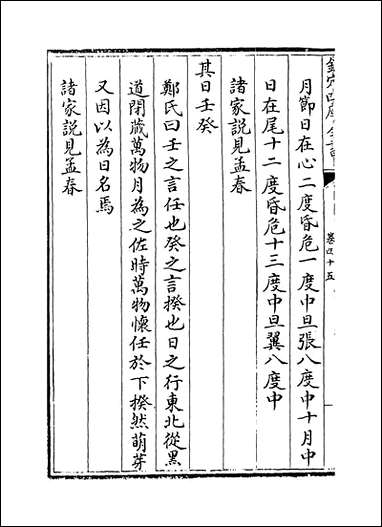 月節日在心二度昏危一度中旦張八度中十月中
日在尾十二度昏危十三度中旦翼八度中
諸家說見孟春
其日壬癸
鄭氏曰壬之言任也癸之言揆也日之行東北從黑
道閉藏萬物月為之佐時萬物懷任於下揆然萌芽
又因以為日名焉
諸家說見孟春
卷四十五